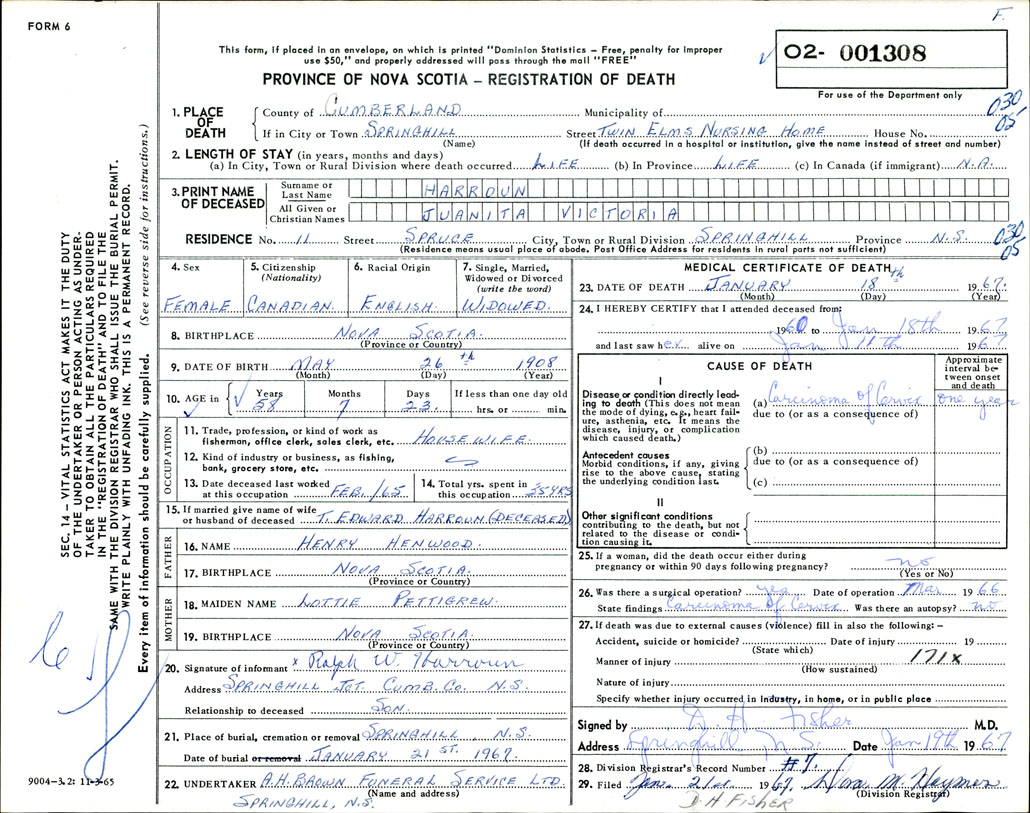 FORM 6
F.
This form, if placed in an envelope, on which is printed "Dominion Statistics – Free, penalty for improper
use $50," and properly addressed will pass through the mail "FREE"
PROVINCE OF NOVA SCOTIA – REGISTRATION OF DEATH
02- 001308
For use of the Department only
030
05
SEC. 14 – VITAL STATISTICS ACT MAKES IT THE DUTY
OF THE UNDERTAKER OR PERSON ACTING AS UNDER-
TAKER TO OBTAIN ALL THE PARTICULARS REQUIRED
IN THE "REGISTRATION OF DEATH" AND TO FILE THE
SAME WITH THE DIVISION REGISTRAR WHO SHALL ISSUE THE BURIAL PERMIT.
WRITE PLAINLY WITH UNFADING INK. THIS IS A PERMANENT RECORD.
Every item of information should be carefully supplied. (See reverse side for instructions.)
1. PLACE OF DEATH
County of CUMBERLAND Municipality of
If in City or Town SPRINGHILL Street TWIN ELMS NURSING HOME House No.
(Name) (If death occurred in a hospital or institution, give the name instead of street and number)
2. LENGTH OF STAY (in years, months and days)
(a) In City, Town or Rural Division where death occurred LIFE (b) In Province LIFE (c) In Canada (if immigrant) N.A.
3. PRINT NAME OF DECEASED
Surname or Last Name HARROUN
All Given or Christian Names JUANITA VICTORIA
RESIDENCE No. 11 Street SPRUCE City, Town or Rural Division SPRINGHILL Province N.S.
030
05
(Residence means usual place of abode. Post Office Address for residents in rural parts not sufficient)
4. Sex 5. Citizenship (Nationality) 6. Racial Origin 7. Single, Married, Widowed or Divorced (write the word)
FEMALE CANADIAN. ENGLISH. WIDOWED.
8. BIRTHPLACE NOVA SCOTIA.
(Province or Country)
9. DATE OF BIRTH MAY 26th 1908
(Month) (Day) (Year)
10. AGE in Years Months Days If less than one day old
58 7 23. hrs. or min.
OCCUPATION
11. Trade, profession, or kind of work as
fisherman, office clerk, sales clerk, etc. HOUSEWIFE.
12. Kind of industry or business, as fishing,
bank, grocery store, etc.
13. Date deceased last worked at this occupation FEB./65 14. Total yrs. spent in this occupation 35YRS
15. If married give name of wife
or husband of deceased T. EDWARD HARROUN (DECEASED)
FATHER
16. NAME HENRY HENWOOD.
17. BIRTHPLACE NOVA SCOTIA.
(Province or Country)
MOTHER
18. MAIDEN NAME LOTTIE PETTIGREW.
19. BIRTHPLACE NOVA SCOTIA.
(Province or Country)
20. Signature of informant x Ralph W. Harroun
Address SPRINGHILL JCT. CUMB. CO. N.S.
Relationship to deceased SON.
21. Place of burial, cremation or removal SPRINGHILL, N.S.
Date of burial or removal JANUARY 21ST. 1967.
22. UNDERTAKER A.H. BROWN FUNERAL SERVICE LTD.
(Name and address)
SPRINGHILL, N.S.
9004-3.2: 11-3-65
MEDICAL CERTIFICATE OF DEATH
23. DATE OF DEATH JANUARY 18th 1967.
(Month) (Day) (Year)
24. I HEREBY CERTIFY that I attended deceased from:
1960 to Jan 18th 1967
and last saw her alive on Jan 11th 1967
CAUSE OF DEATH
Approximate interval between onset and death
I
Disease or condition directly lead-
ing to death (This does not mean
the mode of dying, e.g., heart fail-
ure, asthenia, etc. It means the
disease, injury, or complication
which caused death.)
(a) Carcinoma of Cervix one year
due to (or as a consequence of)
Antecedent causes
Morbid conditions, if any, giving
rise to the above cause, stating
the underlying condition last.
(b)
due to (or as a consequence of)
(c)
II
Other significant conditions
contributing to the death, but not
related to the disease or condi-
tion causing it.
25. If a woman, did the death occur either during
pregnancy or within 90 days following pregnancy? no
(Yes or No)
26. Was there a surgical operation? yes Date of operation Mar 1966
State findings Carcinoma of Cervix Was there an autopsy? no
27. If death was due to external causes (violence) fill in also the following: –
Accident, suicide or homicide? Date of injury 19
(State which)
Manner of injury 171X
(How sustained)
Nature of injury
Specify whether injury occurred in industry, in home, or in public place
Signed by D. H. Fisher M.D.
Address Springhill N.S. Date Jan 19th 1967
28. Division Registrar's Record Number #7.
29. Filed Jan. 21st. 1967. Dora M. Haymer
(Division Registrar)
D. H FISHER